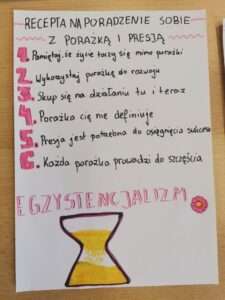 RECEPTA NA PORADZENIE SOBIE
Z PORAŻKĄ I PRESJĄ
1. Pamiętaj, że życie toczy się mimo porażki
2. Wykorzystaj porażkę do rozwoju
3. Skup się na działaniu tu i teraz
4. Porażka cię nie definiuje
5. Presja jest potrzebna do osiągnięcia sukcesu
6. Każda porażka prowadzi do szczęścia
EGZYSTENCJALIZM